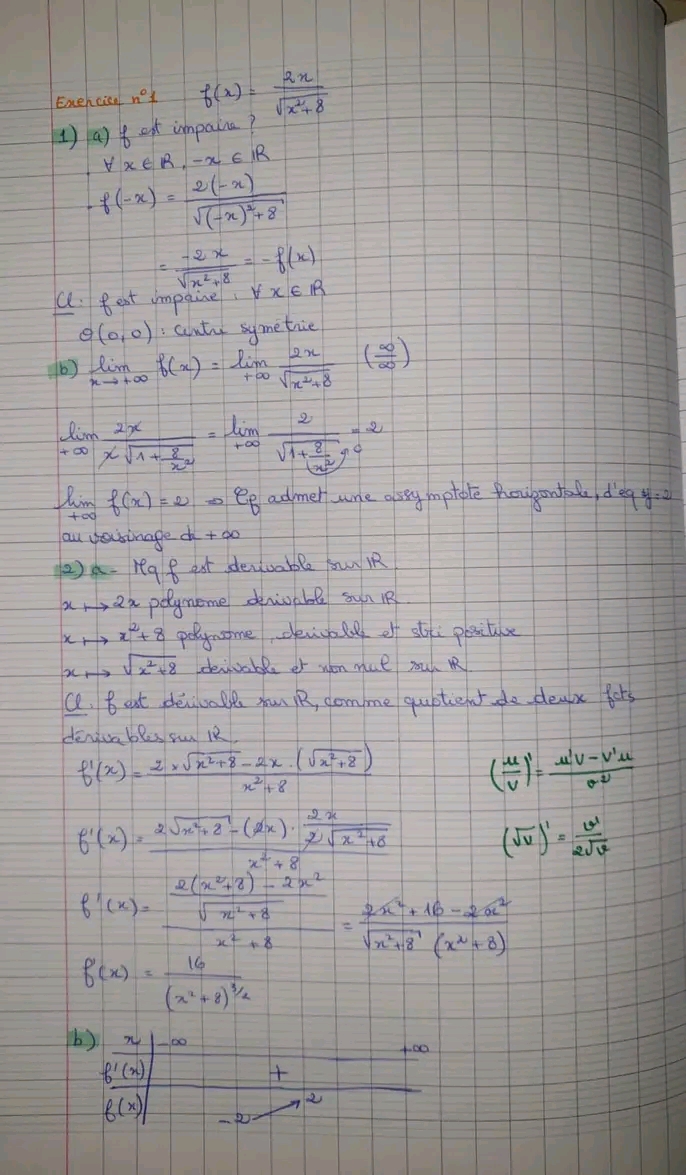 Exercice n°1 f(x) = 2x / √(x²+8)
1) a) f est impaire ?
. ∀ x ∈ ℝ, -x ∈ ℝ
. f(-x) = 2(-x) / √((-x)²+8)
= -2x / √(x²+8) = -f(x)
Cl: f est impaire, ∀ x ∈ ℝ
θ(0,0): centre symétrie
b) lim x→+∞ f(x) = lim +∞ 2x / √(x²+8) (∞/∞)
lim +∞ 2x / x√(1+8/x²) = lim +∞ 2 / √(1+8/x²) = 2 → 0
lim +∞ f(x) = 2 ⇒ Cf admet une assymptote horizontale, d'eq y=2
au voisinage de +∞
2) a- Mq f est derivable sur ℝ
x ↦ 2x polynome derivable sur ℝ
x ↦ x²+8 polynome, derivable et stri positive
x ↦ √(x²+8) derivable et non nul sur ℝ
Cl. f est dérivable sur ℝ, comme quotient de deux fcts
dérivables sur ℝ.
f'(x) = (2×√(x²+8) - 2x·(√(x²+8))') / (x²+8) (u/v)' = (u'v - v'u) / v²
f'(x) = (2√(x²+8) - (2x)·2x / 2√(x²+8)) / (x²+8) (√v)' = v' / 2√v
f'(x) = ((2(x²+8) - 2x²) / √(x²+8)) / (x²+8) = (2x²+16-2x²) / (√(x²+8) (x²+8))
f'(x) = 16 / (x²+8)^3/2
b) x -∞ +∞
f'(x) +
f(x) -2 → 2